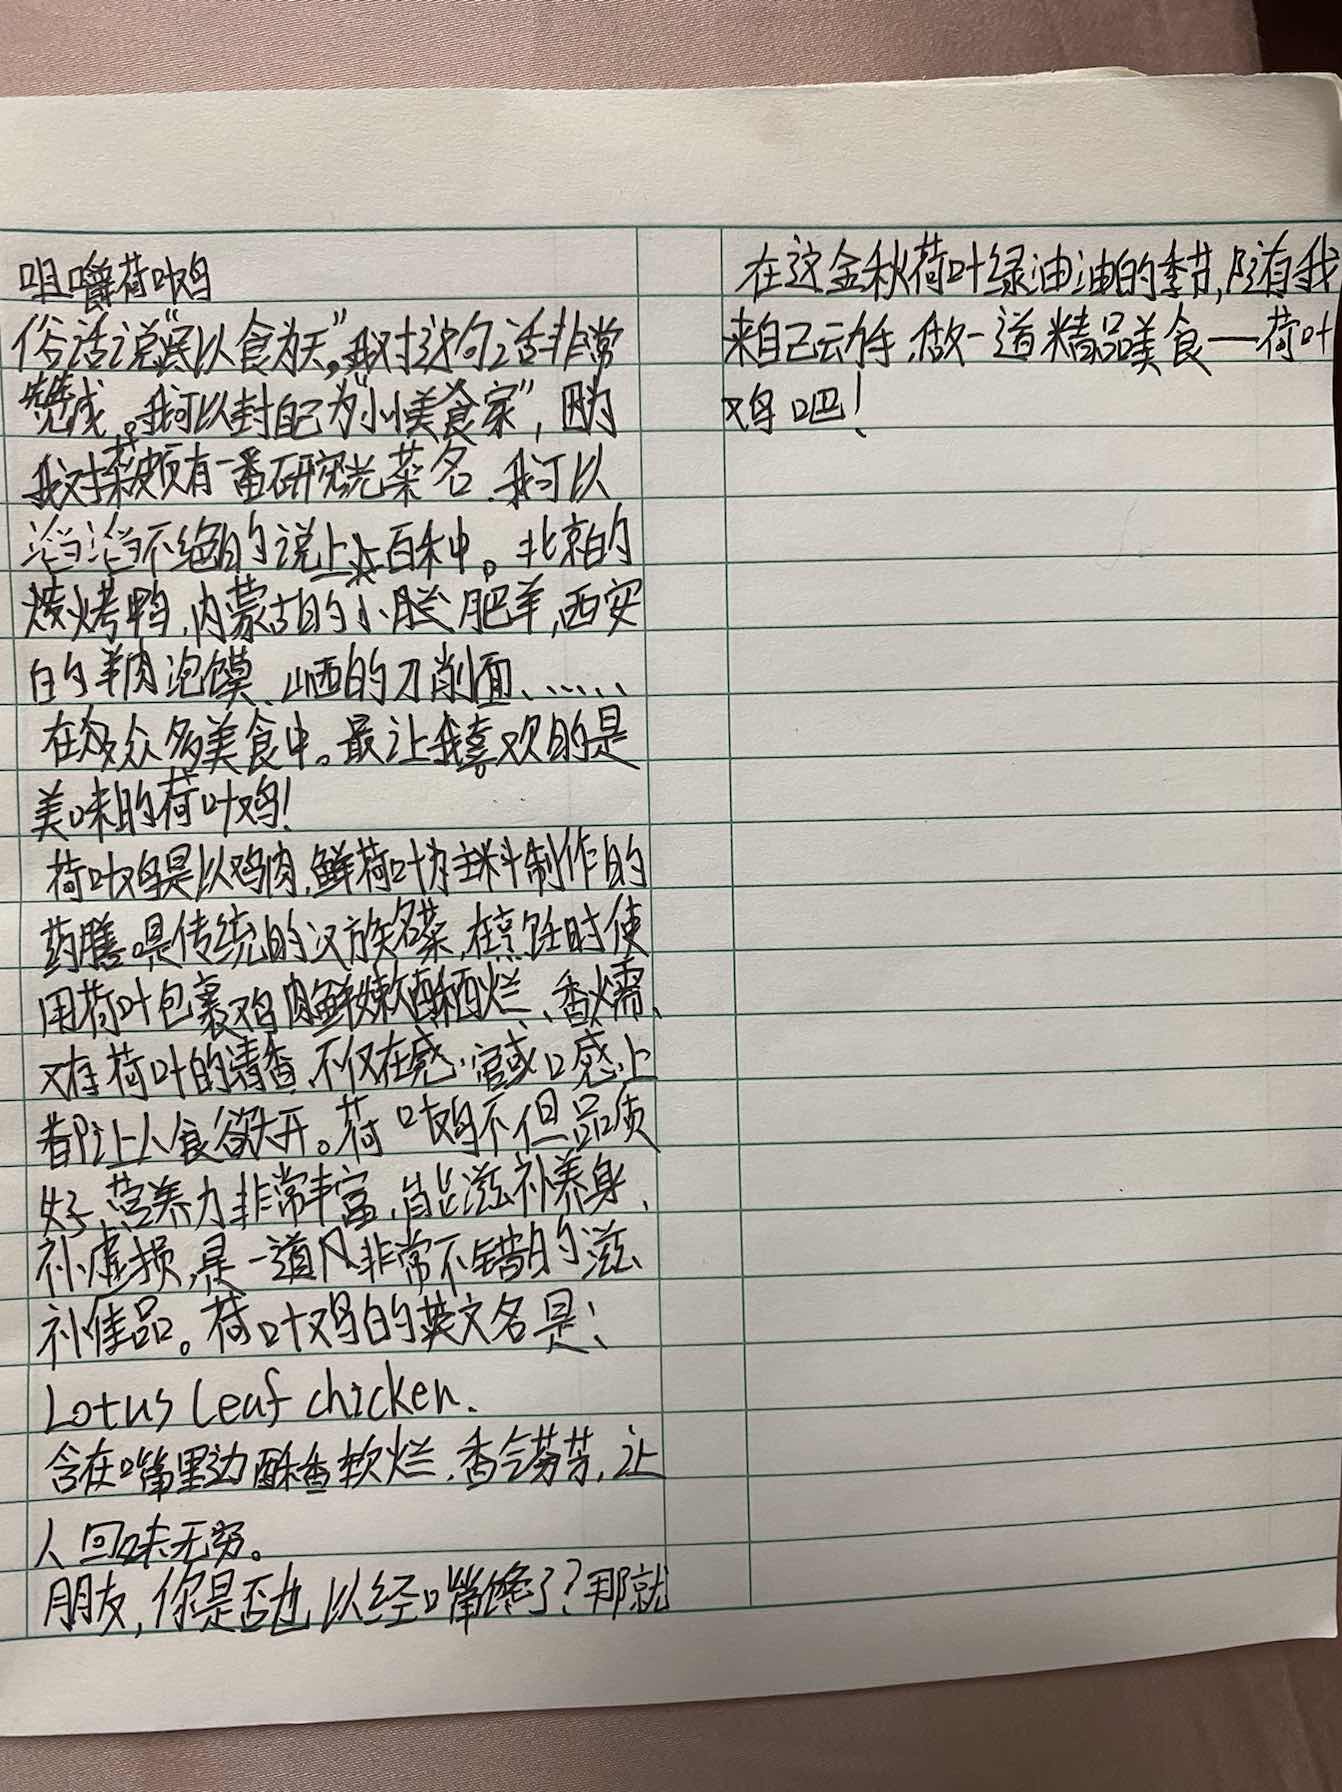 咀嚼荷叶鸡
俗话说“民以食为天”。我对这句话非常
赞成。我可以封自己为“小美食家”，因为
我对菜颇有一番研究光菜名．我可以
滔滔不绝的说上上百种。北京的
烤鸭，内蒙古的小肥羊，西安
的羊肉泡馍、山西的刀削面、……
在众多美食中。最让我喜欢的是
美味的荷叶鸡！
荷叶鸡是以鸡肉，鲜荷叶为主料制作的
药膳。是传统的汉族名菜，在烹饪时使
用荷叶包裹鸡肉鲜嫩酥烂、香糯、
又有荷叶的清香，不仅在感官或口感上
都让人食欲大开。荷叶鸡不但品质
好，营养力非常丰富，自能滋补养身，
补虚损，是一道非常不错的滋
补佳品。荷叶鸡的英文名是：
Lotus leaf chicken.
含在嘴里边酥香软烂，香气芬芳，让
人回味无穷。
朋友，你是否也以经嘴馋了？那就
在这金秋荷叶绿油油的季节，随我
来自己动手，做一道精品美食——荷叶
鸡吧！